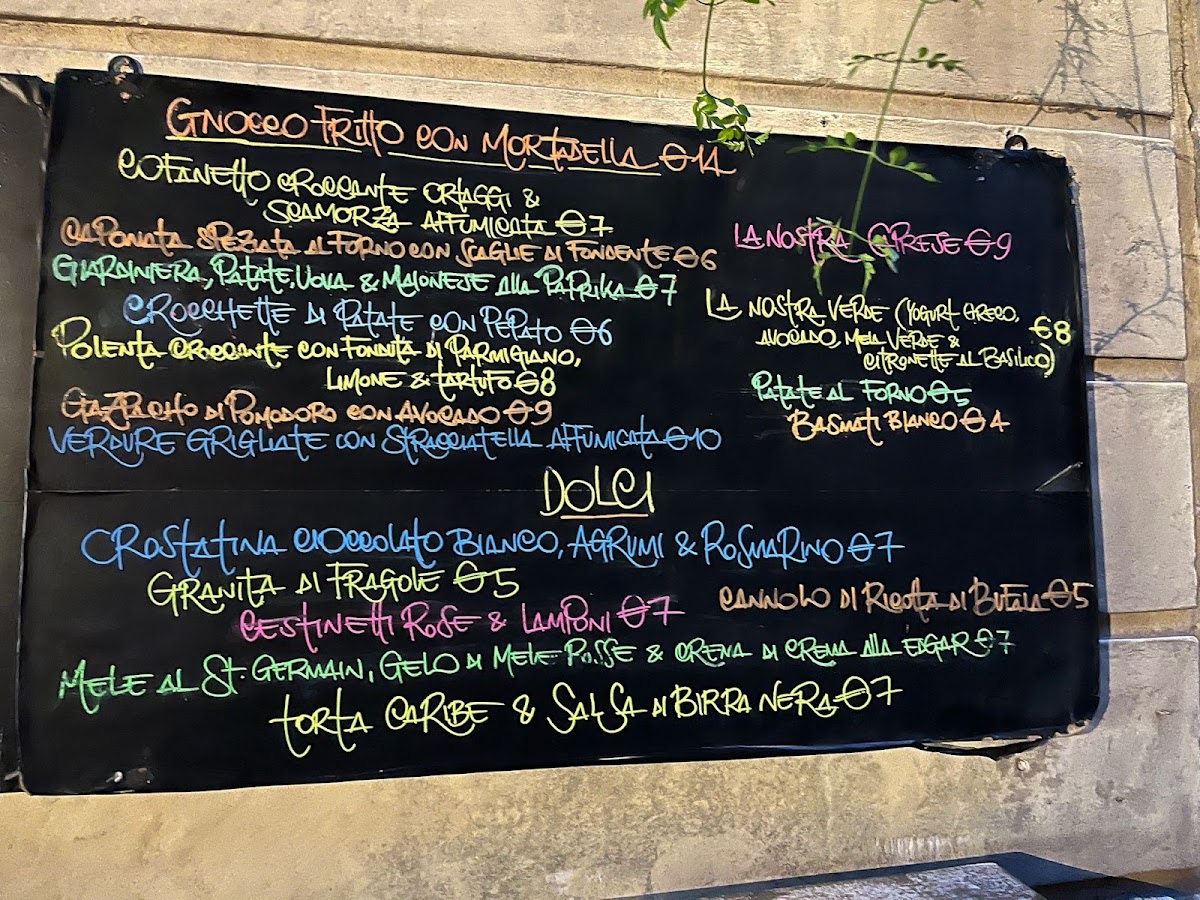 GNOCCO FRITTO CON MORTADELLA €14
COFANETTO CROCCANTE ORTAGGI &
SCAMORZA AFFUMICATA €7
CAPONATA SPEZIATA AL FORNO CON SCAGLIE DI FONDENTE €6
GIARDINIERA, PATATE, UOVA & MAIONESE ALLA PAPRIKA €7
CROCCHETTE DI PATATE CON PEPATO €6
POLENTA CROCCANTE CON FONDUTA DI PARMIGIANO,
LIMONE & TARTUFO €8
GAZPACHO DI POMODORO CON AVOCADO €9
VERDURE GRIGLIATE CON STRACCIATELLA AFFUMICATA €10
LA NOSTRA CAPRESE €9
LA NOSTRA VERDE (YOGURT GRECO,
AVOCADO, MELA VERDE & €8
CITRONETTE AL BASILICO)
PATATE AL FORNO €5
BASMATI BIANCO €4
DOLCI
CROSTATINA CIOCCOLATO BIANCO, AGRUMI & ROSMARINO €7
GRANITA DI FRAGOLE €5
CANNOLO DI RICOTTA DI BUFALA €5
CESTINETTI ROSE & LAMPONI €7
MELE AL ST. GERMAIN, GELO DI MELE ROSSE & CREMA DI CREMA ALLA EDGAR €7
TORTA CARIBE & SALSA DI BIRRA NERA €7